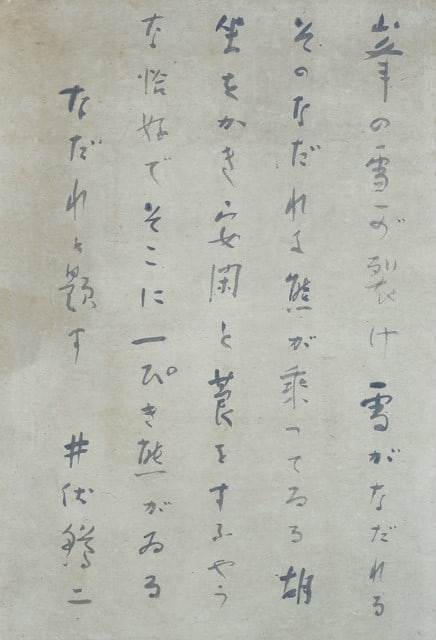 峯の雪が裂け 雪がなだれる
そのなだれに熊が乗つてゐる胡
坐をかき安閑と莨をすふやう
な恰好でそこに一ぴき熊がゐる
なだれと題す 井伏鱒二